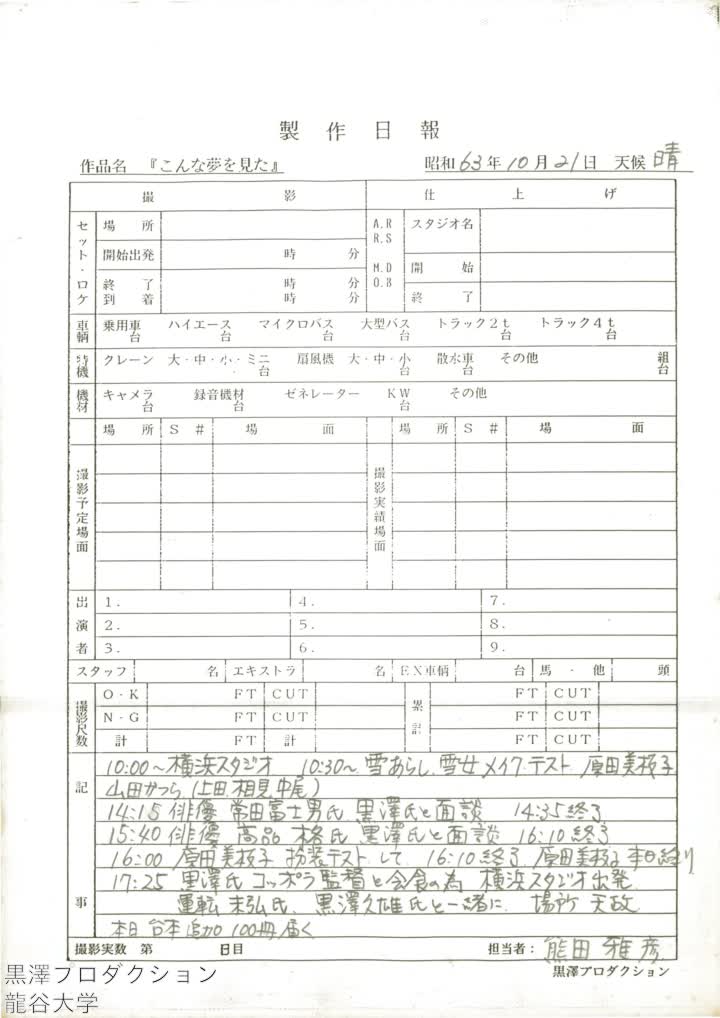 製作日報
作品名 『こんな夢を見た』 昭和63年10月21日 天候 晴
撮影 仕上げ
セット・ロケ 場所 A.R R.S スタジオ名
開始出発 時 分 M.D O.B 開始
終了 時 分
到着 時 分 終了
車輌 乗用車 台 ハイエース 台 マイクロバス 台 大型バス 台 トラック2t 台 トラック4t 台
特機 クレーン 大・中・小・ミニ 台 扇風機 大・中・小 台 散水車 台 その他 組 台
機材 キャメラ 台 録音機材 台 ゼネレーター KW 台 その他
場所 S# 場面 場所 S# 場面
撮影予定場面 撮影実績場面
出演者 1. 4. 7.
2. 5. 8.
3. 6. 9.
スタッフ 名 エキストラ 名 EX車輌 台 馬・他 頭
撮影尺数 O・K FT CUT 累計 FT CUT
N・G FT CUT FT CUT
計 FT 計 FT CUT
記事
10:00〜横浜スタジオ 10:30〜 雪あらし、雪女メイク・テスト 原田美枝子
山田かつら(上田、相見、中尾)
14:15 俳優 常田富士男氏 黒澤氏と面談 14:35終了
15:40 俳優 高品 格氏 黒澤氏と面談 16:10終了
16:00 原田美枝子 扮装テストして 16:10終了 原田美枝子 本日終り
17:25 黒澤氏 コッポラ監督と会食の為 横浜スタジオ出発
運転 末弘氏、黒澤久雄氏と一緒に 場所 天政
本日 台本追加 100冊 届く
撮影実数 第 日目 担当者: 熊田雅彦
黒澤プロダクション
黒澤プロダクション
龍谷大学